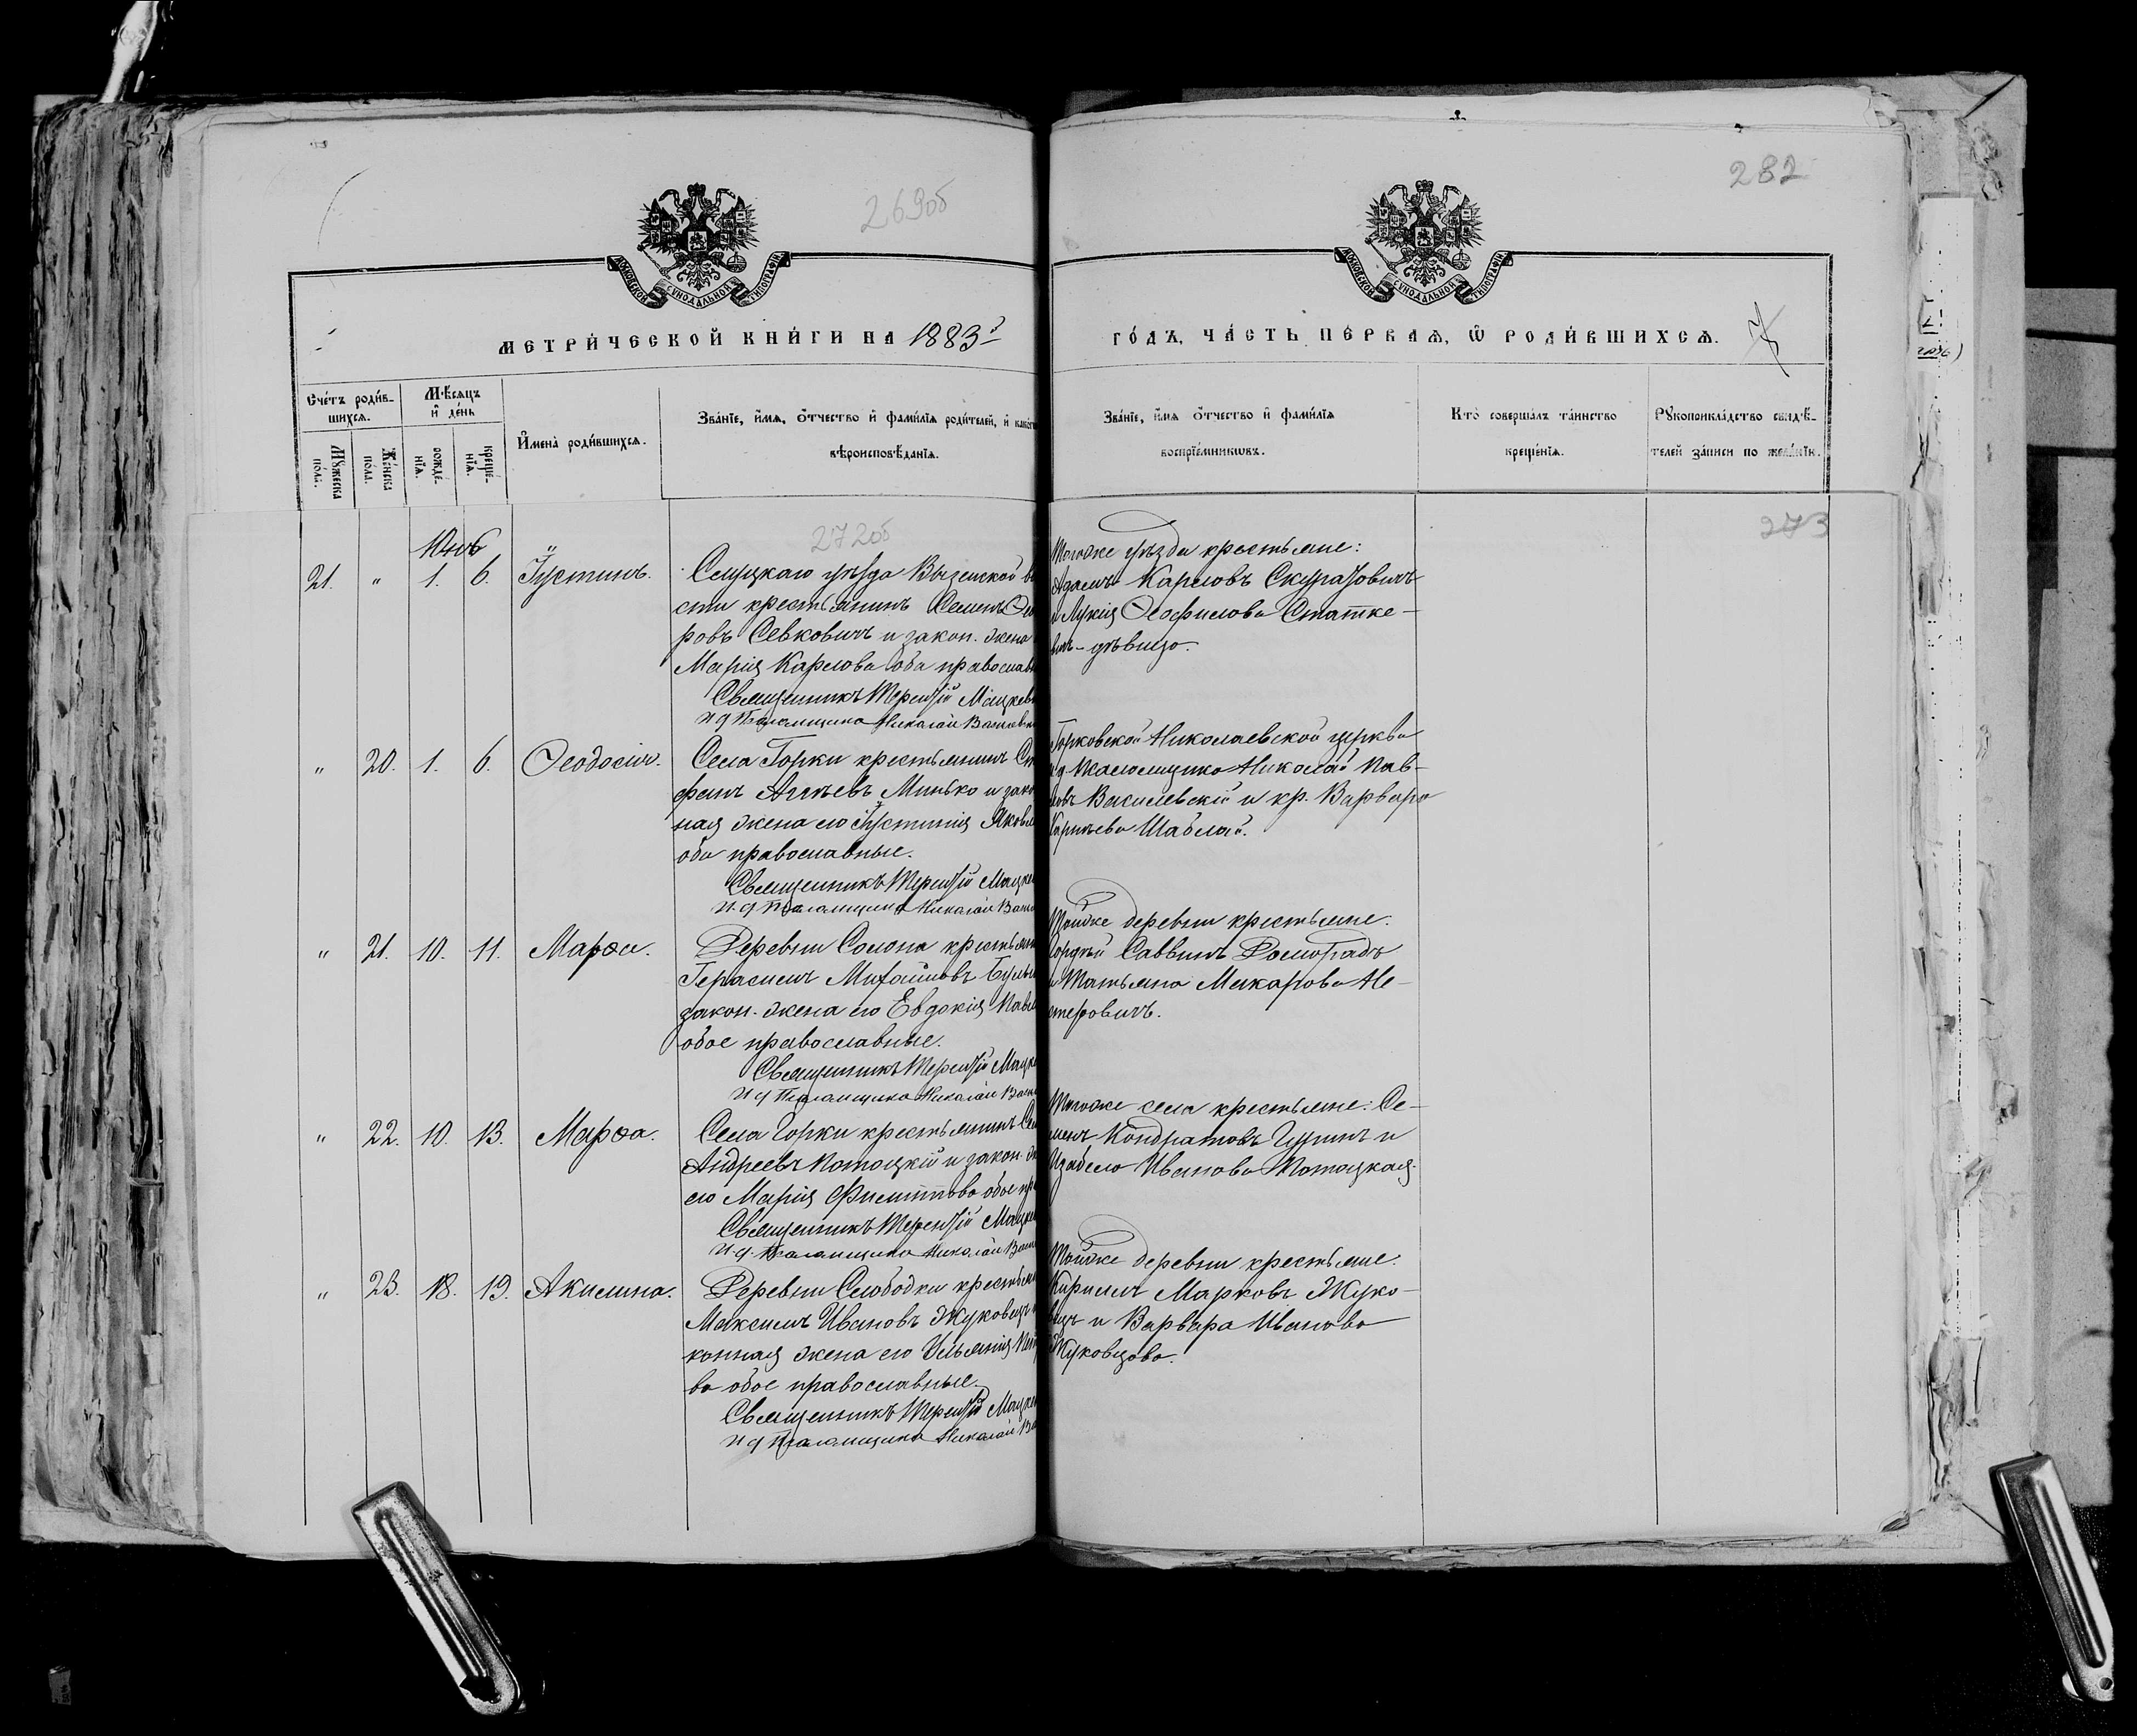 269об
282
МОСКОВСКОЙ СѴНОДАЛЬНОЙ ТИПОГРАФІИ
МОСКОВСКОЙ СѴНОДАЛЬНОЙ ТИПОГРАФІИ
МЕТРИ́ЧЕСКОЙ КНИ́ГИ НА 1883
ГО́ДЪ, ЧА́СТЬ ПЕ́РВАЯ, Ѿ РОДИ́ВШИХСЯ.
Сче́тъ роди́в-
шихся.
Мѣ́сяцъ
и҆ де́нь
Мꙋ́жеска
по́ла.
Же́нска
по́ла.
рожде́-
нїя.
креще́-
нїя.
И҆мена̀ роди́вшихся.
Зва́нїе, и҆́мя, ѻ҆́тчество и҆ фами́лїя роди́телей, и҆
вѣроисповѣ́данїя.
Зва́нїе, и҆́мя ѻ҆́тчество и҆ фами́лїя
воспрїе́мникѡвъ.
Кто̀ соверша́лъ та́инство
креще́нїя.
Рꙋкоприкла́дство свидѣ́-
телей за́писи по жела́нїю.
272об
273
21. " 1. 6. Іустинъ.
Слуцкаго уѣзда Вызенской во
сти крестьянинъ Семенъ Ѳео
ровъ Севковичъ и закон. жена
Марія Карлова оба православн
Священникъ Терентій Мацкев
И д Псаломщика Николай Васи
Тогоже уѣзда крестьяне:
Адамъ Карловъ Скуратовичъ
и Лукія Ѳеофилова Статке-
вичъ-дѣвица.
" 20. 1. 6. Ѳеодосія.
Села Горки крестьянинъ Сте
фанъ Аггѣевъ Минько и закон
ная жена его Іустинія Яковл
оба православные.
Священникъ Терентій Мацке
И. д Псаломщика Николай Васи
Горковской Николаевской церкви
и д Псаломщика Николай Пав-
ловъ Василевскій и кр. Варвара
Шаблай.
" 21. 10. 11. Марѳа.
Деревни Солона крестьян
Герасимъ Михайловъ
закон. жена его Евдокія Павл
обое православные.
Священникъ Терентій Мацке
И д Псаломщика Николай Васи
Тойже деревни крестьяне.
Гордѣй Саввинъ
и Татьяна Макарова Не-
стеровичъ.
" 22. 10. 13. Марѳа.
Села Горки крестьянинъ Сем
Андреевъ Потоцкій и закон. ж
его Марія Филиппова обое пр
Священникъ Терентій Мацке
И. д. Псаломщика Николай Васи
Тогоже села крестьяне: Се-
менъ Кондратовъ Гуринъ и
Изабела Иванова Потоцкая.
" 23. 18. 19. Акилина.
Деревни Слободки крестьян
Максимъ Ивановъ Жуковецъ и
конная жена его Ульянія Пет
ва обое православные.
Священникъ Терентій Мацке
И д Псаломщика Николай Ва
Тойже деревни крестьяне.
Кирилъ Марковъ Жуко-
вецъ и Варвара Иванова
Жуковцова.